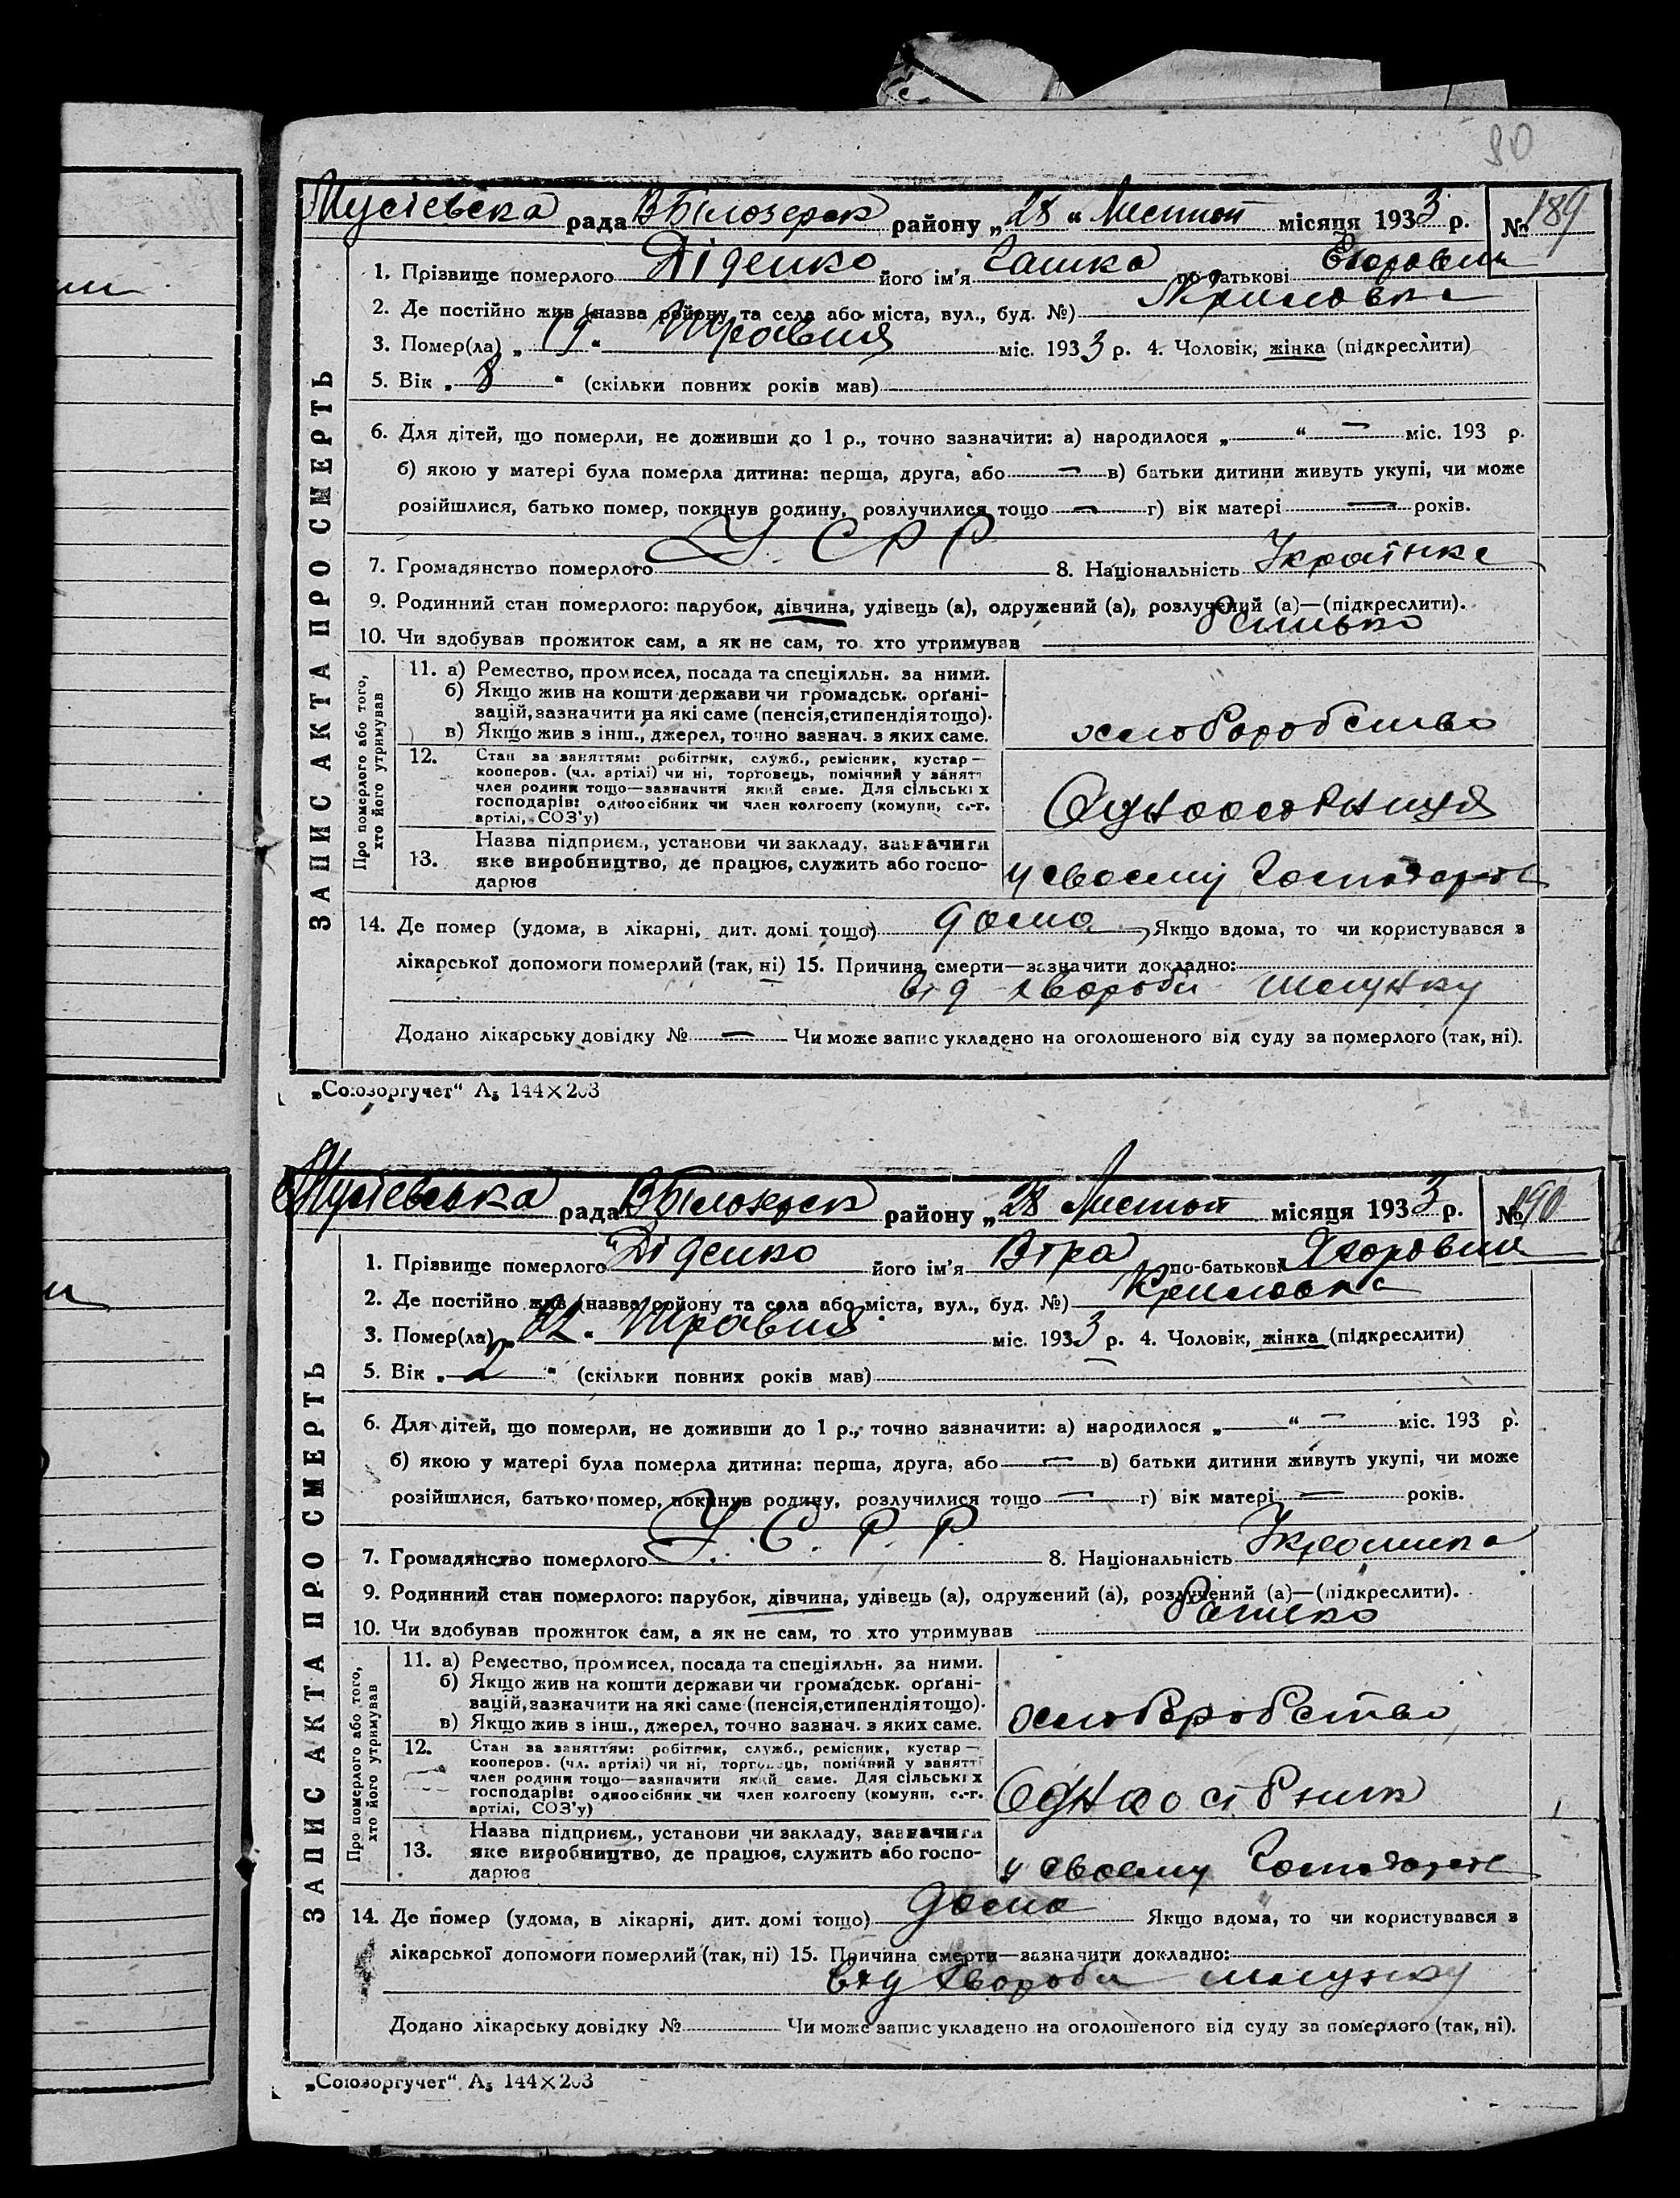 90
Мусіевська рада ВБілозерск району „28“ Листоп місяця 1933 р. № 189
1. Прізвище померлого Діденко його ім'я Сашка по-батькові Егоровна
2. Де постійно жив (назва району та села або міста, вул., буд. №) Кримовка
3. Помер(ла) „19“ Травня міс. 1933 р. 4. Чоловік, жінка (підкреслити)
5. Вік „8“ (скільки повних років мав)
6. Для дітей, що померли, не доживши до 1 р., точно зазначити: а) народилося „—“ — міс. 193 р.
б) якою у матері була померла дитина: перша, друга, або — в) батьки дитини живуть укупі, чи може
розійшлися, батько помер, покинув родину, розлучилися тощо — г) вік матері — років.
7. Громадянство померлого У.СРР 8. Національність Українка
9. Родинний стан померлого: парубок, дівчина, удівець (а), одружений (а), розлучений (а)—(підкреслити).
10. Чи здобував прожиток сам, а як не сам, то хто утримував Батько
ЗАПИС АКТА ПРО СМЕРТЬ
Про померлого або того, хто його утримував
11. а) Ремество, промисел, посада та спеціяльн. за ними.
б) Якщо жив на кошти держави чи громадськ. орґані-
зацій, зазначити на які саме (пенсія, стипендія тощо).
в) Якщо жив з інш., джерел, точно зазнач. з яких саме.
хлоборобство
12. Стан за заняттям: робітник, служб., ремісник, кустар—
кооперов. (чл. артілі) чи ні, торговець, помічний у занятт
член родини тощо—зазначити який саме. Для сільських
господарів: одноосібник чи член колгоспу (комуни, с.-г.
артілі, СОЗ'у)
Одноосібниця
13. Назва підприєм., установи чи закладу, зазначити
яке виробництво, де працює, служить або госпо-
дарює
у своєму Господарст
14. Де помер (удома, в лікарні, дит. домі тощо) дома Якщо вдома, то чи користувався з
лікарської допомоги померлий (так, ні) 15. Причина смерти—зазначити докладно:
від хвороби шлунку
Додано лікарську довідку № — Чи може запис укладено на оголошеного від суду за померлого (так, ні).
„Союзоргучет“ А5 144×203
Мусіевська рада ВБілозерск району „28 Листоп місяця 1933 р. № 190
1. Прізвище померлого Діденко його ім'я Віра по-батькові Ягоровна
2. Де постійно жив (назва району та села або міста, вул., буд. №) Кримовка
3. Помер(ла) „22“ Травня міс. 1933 р. 4. Чоловік, жінка (підкреслити)
5. Вік „2“ (скільки повних років мав)
6. Для дітей, що померли, не доживши до 1 р., точно зазначити: а) народилося „—“ — міс. 193 р.
б) якою у матері була померла дитина: перша, друга, або — в) батьки дитини живуть укупі, чи може
розійшлися, батько помер, покинув родину, розлучилися тощо — г) вік матері — років.
7. Громадянство померлого У.С.Р.Р. 8. Національність Украинка
9. Родинний стан померлого: парубок, дівчина, удівець (а), одружений (а), розлучений (а)—(підкреслити).
10. Чи здобував прожиток сам, а як не сам, то хто утримував Батько
ЗАПИС АКТА ПРО СМЕРТЬ
Про померлого або того, хто його утримував
11. а) Ремество, промисел, посада та спеціяльн. за ними.
б) Якщо жив на кошти держави чи громадськ. орґані-
зацій, зазначити на які саме (пенсія, стипендія тощо).
в) Якщо жив з інш., джерел, точно зазнач. з яких саме.
хлоборобство
12. Стан за заняттям: робітник, служб., ремісник, кустар—
кооперов. (чл. артілі) чи ні, торговець, помічний у занятті
член родини тощо—зазначити який саме. Для сільських
господарів: одноосібник чи член колгоспу (комуни, с.-г.
артілі, СОЗ'у)
Одноосібник
13. Назва підприєм., установи чи закладу, зазначити
яке виробництво, де працює, служить або госпо-
дарює
у своєму Господарст
14. Де помер (удома, в лікарні, дит. домі тощо) дома Якщо вдома, то чи користувався з
лікарської допомоги померлий (так, ні) 15. Причина смерти—зазначити докладно:
від хвороби шлунку
Додано лікарську довідку № Чи може запис укладено на оголошеного від суду за померлого (так, ні).
„Союзоргучет“ А5 144×203